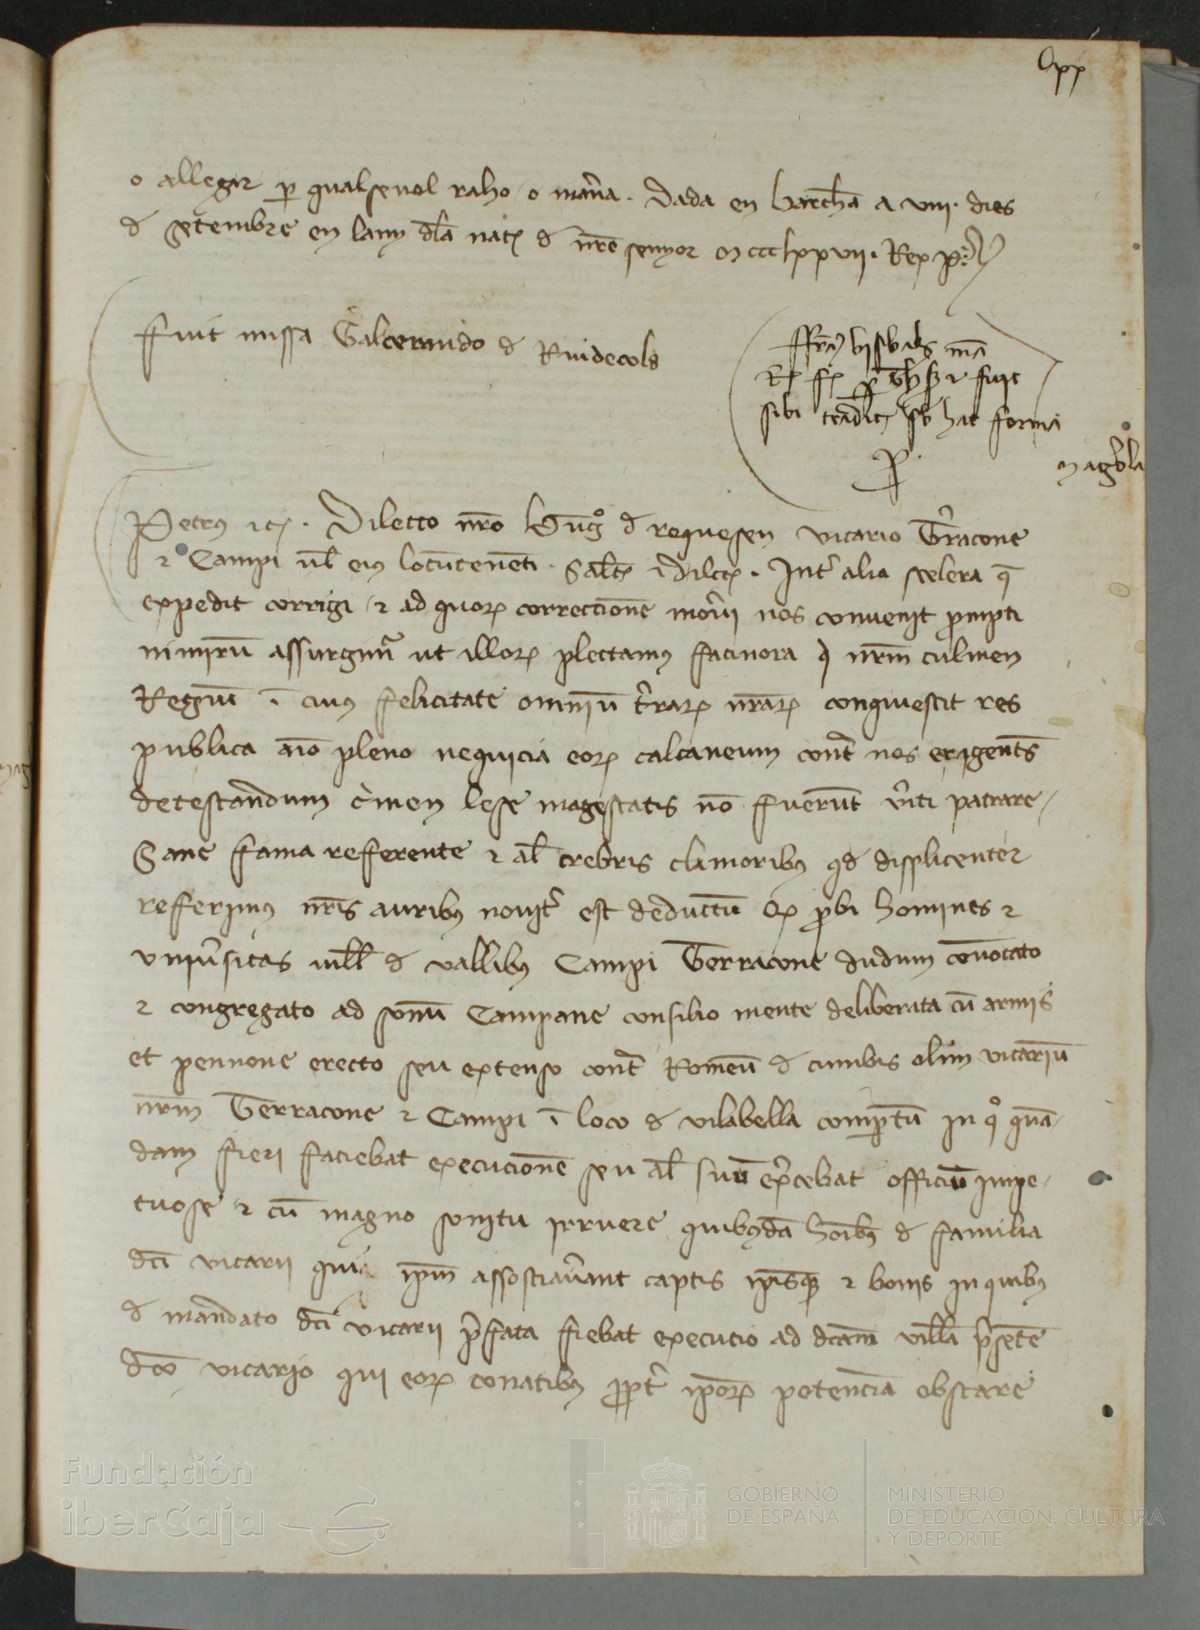 o allegar p qualsevol raho o man̄a. Dada en barch̄a a viii. dies
d setembre en lany dl̄a nat̄ d nr̄e senyor mccclxxvii. Rex P.
Fuit missa Galcerando d Riudecols
Ffr̄ bisbal man̄
fuit
sibi tradit sb hac forma
P̱
Petrus etc̄. Dilecto nr̄o de requesen vicario Trr̄acone
et Campi vl̄ eius locūtenēti. Salt̄ et dilct̄. Intr̄ alia scelera q̄
expedit corrigi et ad quor̄ correccionē nos convenit prompti
nimirū assurgimr̄ ut illor̄ plectamus facinora q nr̄m culmen
Regiū ī cuius felicitate omniū tr̄rar̄ nr̄ar̄ conquiescit res
publica aīo pleno nequicia eor̄ calcaneum cont̄ nos erigent̄s
detestandum c̄men lese magestatis nō fuerūt v̄iti patrare
Sane fama refferente et al̄ crebris clamoribus qd displicenter
referimus nr̄is auribus novit̄ est deductū qx p̄bi homines et
univ̄sitas vill̄ d vallibus Campi Terracone dudum cōvocato
et congregato ad sonū Campane consilio mente deliberata cū armis
et pennone erecto seu extenso cont̄ Romeū d cumbis olim vicariū
nr̄m Terracone et Campi ī loco d vilabella comp̄tū in qo quā
dam fieri faciebat execucionē seu al̄ suū ex̄cebat officiū impe
tuose et cū magno sonitu irruere quibusdā hoībus d familia
dc̄i vicarii qui ip̄m assosciav̄ant captis ip̄isque et bonis in quibus
d mandato dc̄i vicarii p̄fata fiebat execucio ad dc̄am villā p̄sētē
dc̄o vicario qui eor̄ conatibus p̄pt̄ ip̄or̄ potenciā obstare
Fundación
iberCaja
GOBIERNO
DE ESPAÑA
MINISTERIO
DE EDUCACIÓN, CULTURA
Y DEPORTE